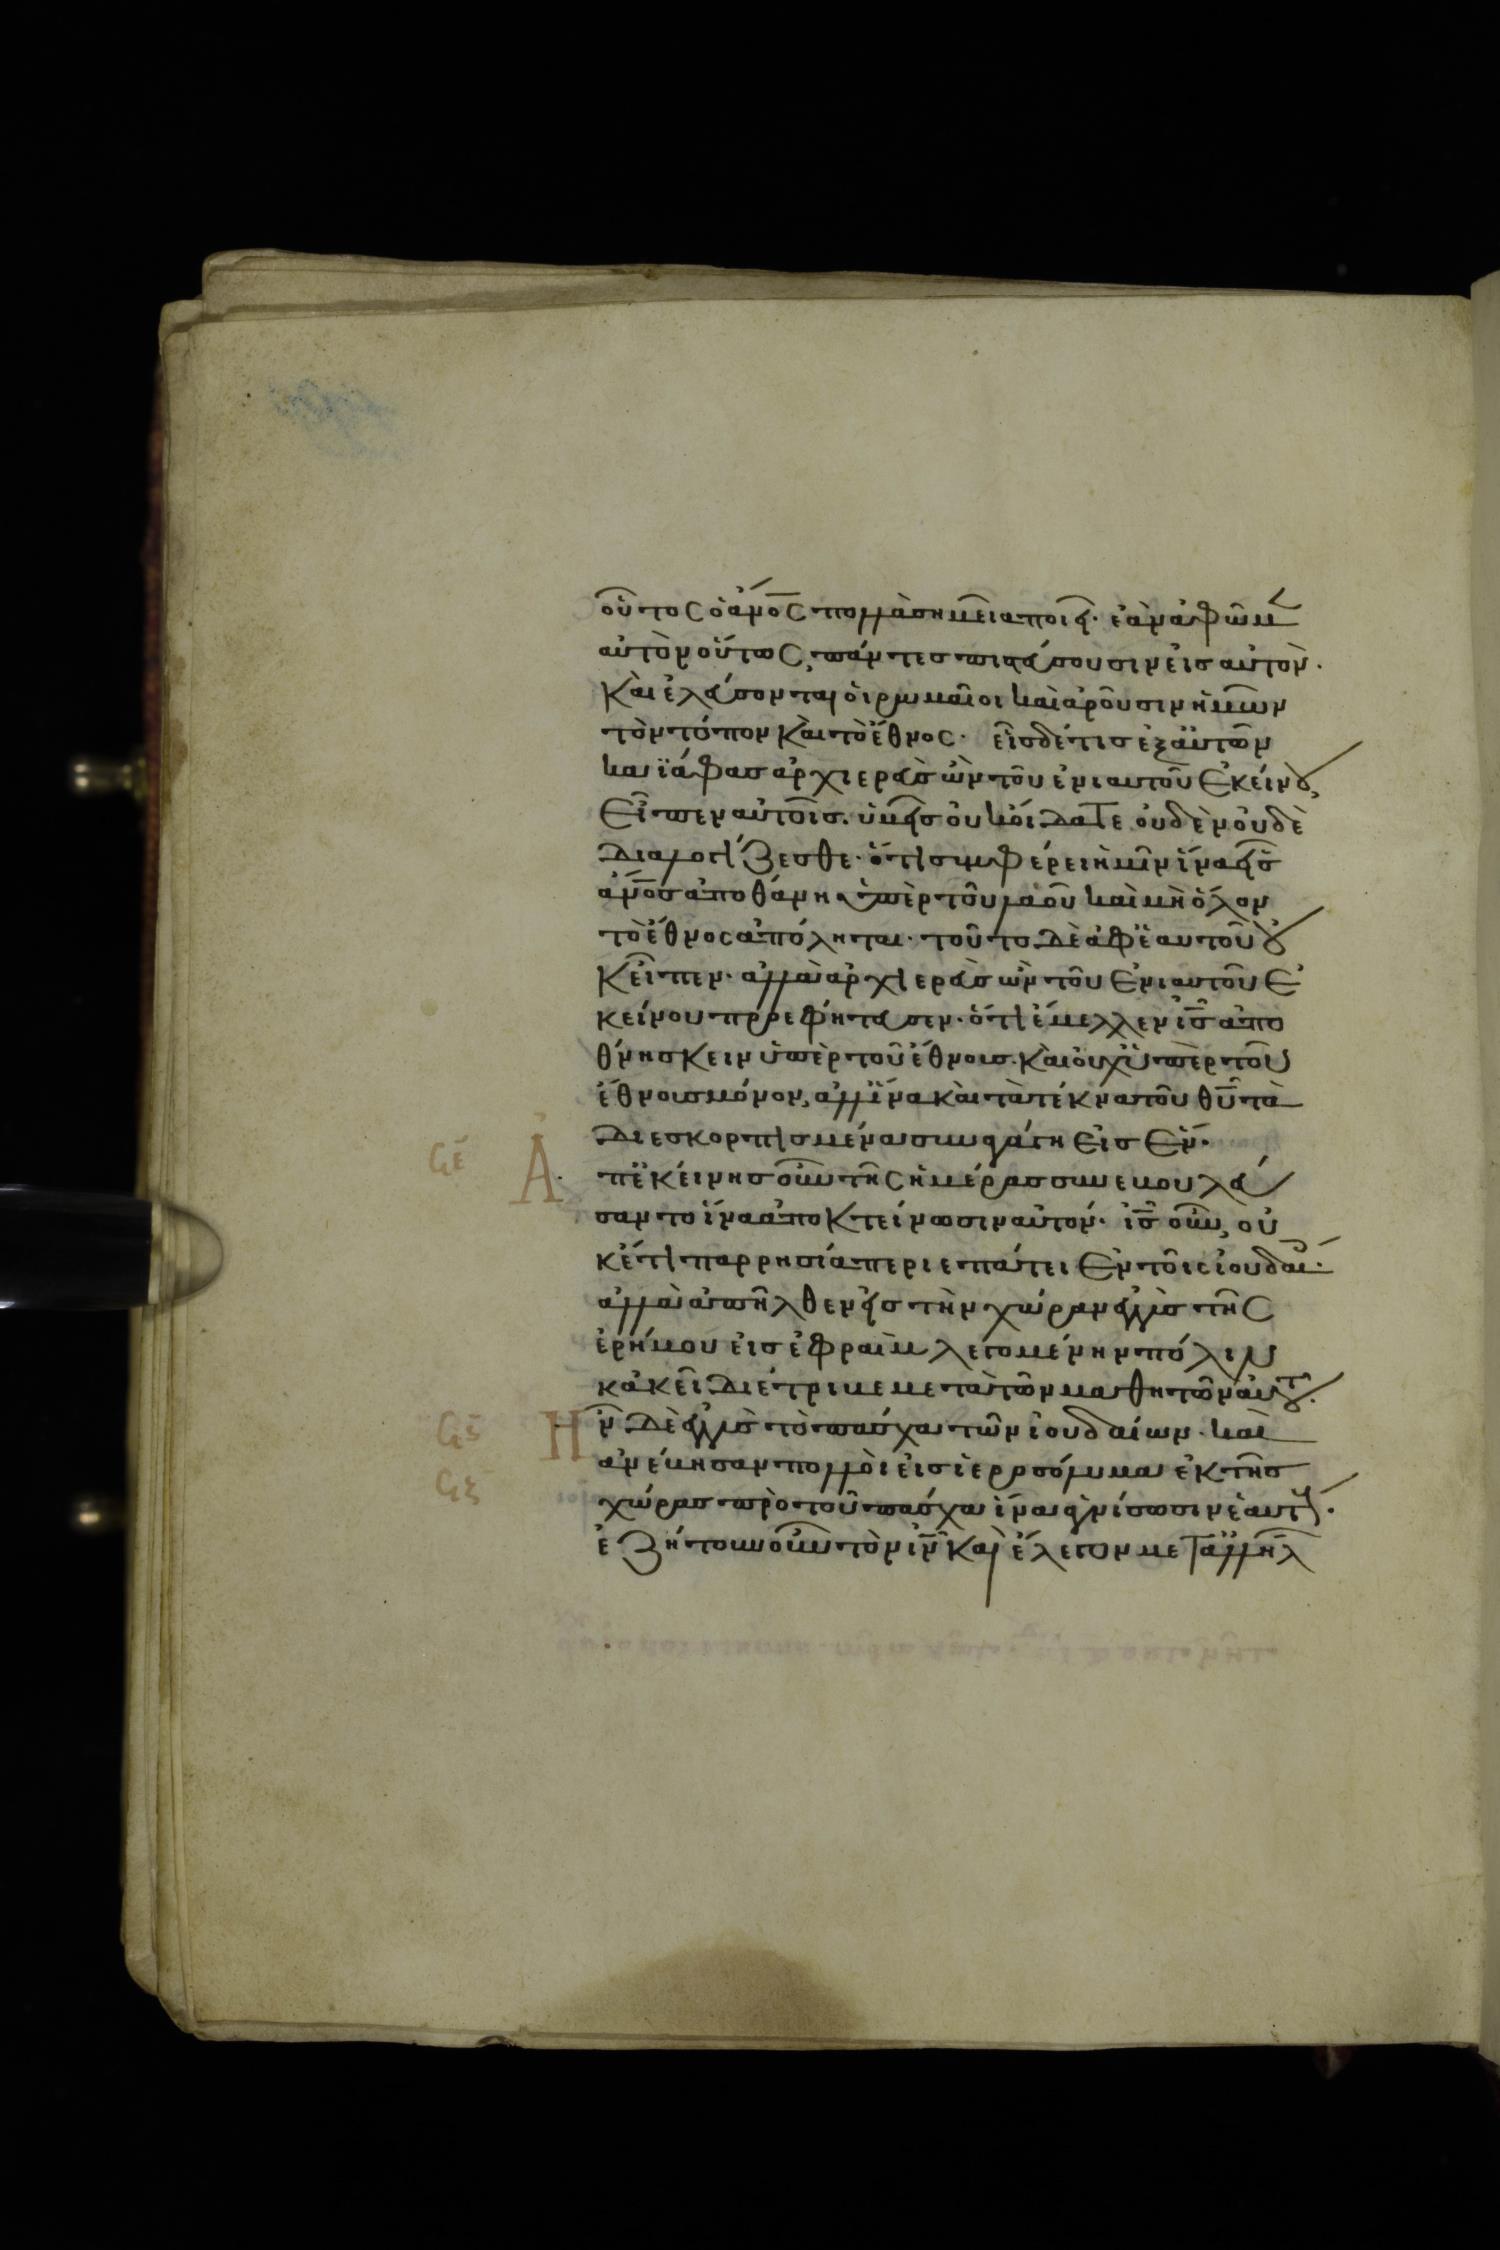 οὗτος ὁ ἄνος πολλὰ σημεῖα ποιεῖ· ἐὰν ἀφῶμεν
αὐτὸν οὕτως, πάντες πιστεύσουσιν εἰς αὐτόν·
Καὶ ἐλεύσονται οἱ ρωμαῖοι καὶ ἀροῦσιν ἡμῶν
τὸν τόπον καὶ τὸ ἔθνος· εἷς δέ τις ἐξ αὐτῶν
καϊάφας ἀρχιερεὺς ὢν τοῦ ἐνιαυτοῦ ἐκείνου,
εἶπεν αὐτοῖς· ὑμεῖς οὐκ οἴδατε οὐδὲν οὐδὲ
διαλογίζεσθε· ὅτι συμφέρει ἡμῖν ἵνα εἷς
ἄνος ἀποθάνη ὑπὲρ τοῦ λαοῦ καὶ μὴ ὅλον
τὸ ἔθνος ἀπόληται· τοῦτο δὲ ἀφ ἑαυτοῦ οὐ
κ εἶπεν· ἀλλὰ ἀρχιερεὺς ὢν τοῦ ἐνιαυτοῦ ἐ
κείνου προεφήτευσεν· ὅτι ἔμελλεν ις ἀπο
θνήσκειν ὑπὲρ τοῦ ἔθνους· καὶ οὐχ ὑπὲρ τοῦ
ἔθνους μόνον, ἀλλ ἵνα καὶ τὰ τέκνα τοῦ θυ τὰ
διεσκορπισμένα συναγάγη εἰς ἕν·
ϟε Ἀπ ἐκείνης οὖν τῆς ἡμέρας συνεβουλεύ
σαντο ἵνα ἀποκτείνωσιν αὐτόν· ις οὖν, οὐ
κέτι παρρησία περιεπάτει ἐν τοῖς ἰουδαίοις·
ἀλλὰ ἀπῆλθεν εἰς τὴν χώραν ἐγγὺς τῆς
ἐρήμου εἰς ἐφραὶμ λεγομένην πόλιν
κἀκεῖ διέτριβε μετὰ τῶν μαθητῶν αὐτοῦ·
ϟς Ἦν δὲ ἐγγὺς τὸ πάσχα τῶν ἰουδαίων· καὶ
ϟζ ἀνέβησαν πολλοὶ εἰς ἱεροσόλυμα ἐκ τῆς
χώρας πρὸ τοῦ πάσχα ἵνα ἁγνίσωσιν ἑαυτούς·
ἐζήτουν οὖν τὸν ιν καὶ ἔλεγον μετ ἀλλήλ